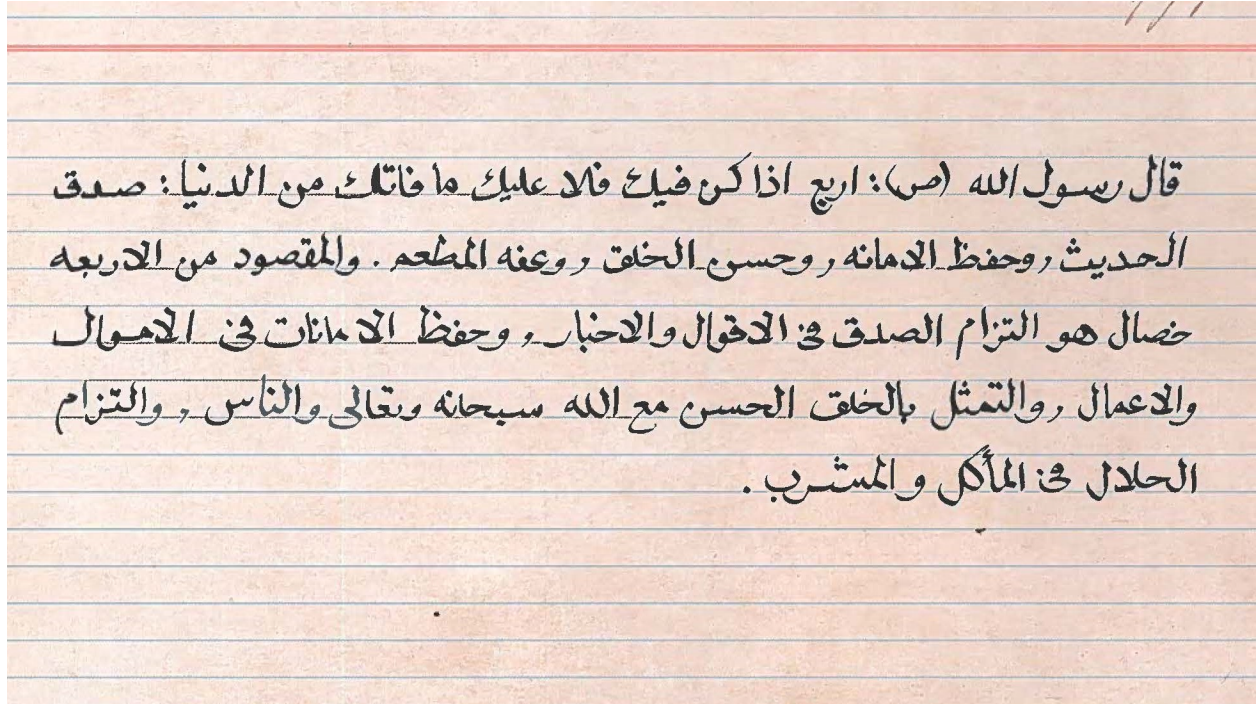 قال رسول الله (ص): اربع اذا كن فيك فلا عليك ما فاتك من الدنيا: صدق
الحديث, وحفظ الامانه, وحسن الخلق, وعفه المطعم. والمقصود من الاربعه
خصال هو التزام الصدق في الاقوال والاخبار, وحفظ الامانات في الاموال
والاعمال, والتمثل بالخلق الحسن مع الله سبحانه وتعالى والناس, والتزام
الحلال في المأكل والمشرب.